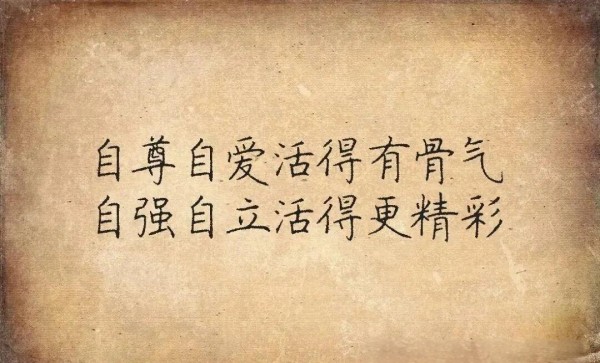 自尊自爱活得有骨气
自强自立活得更精彩